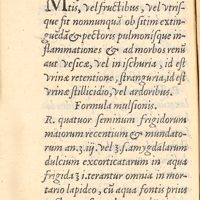 Mtis, vel fructibus, vel vtris-
que fit nonnunquã ob sitim extin-
guẽdã & pectoris pulmonisque in-
flammationes & ad morbos renũ
aut vesicæ, vel in ischuria, id est
vrinæ retentione, stranguria, id est
vrinæ stillicidio, vel ardoribus.
Formula mulsionis.
R. quatuor seminum frigidorum
maiorum recentium & mundato-
rum an. ʒ.iij. vel ℥.s. amygdalarum
dulcium excorticatarum in aqua
frigida ʒ i. terantur omnia in mor-
tario lapideo, cũ aqua fontis prius